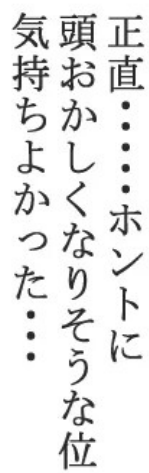 正直・・・・・ホントに
頭おかしくなりそうな位
気持ちよかった・・・